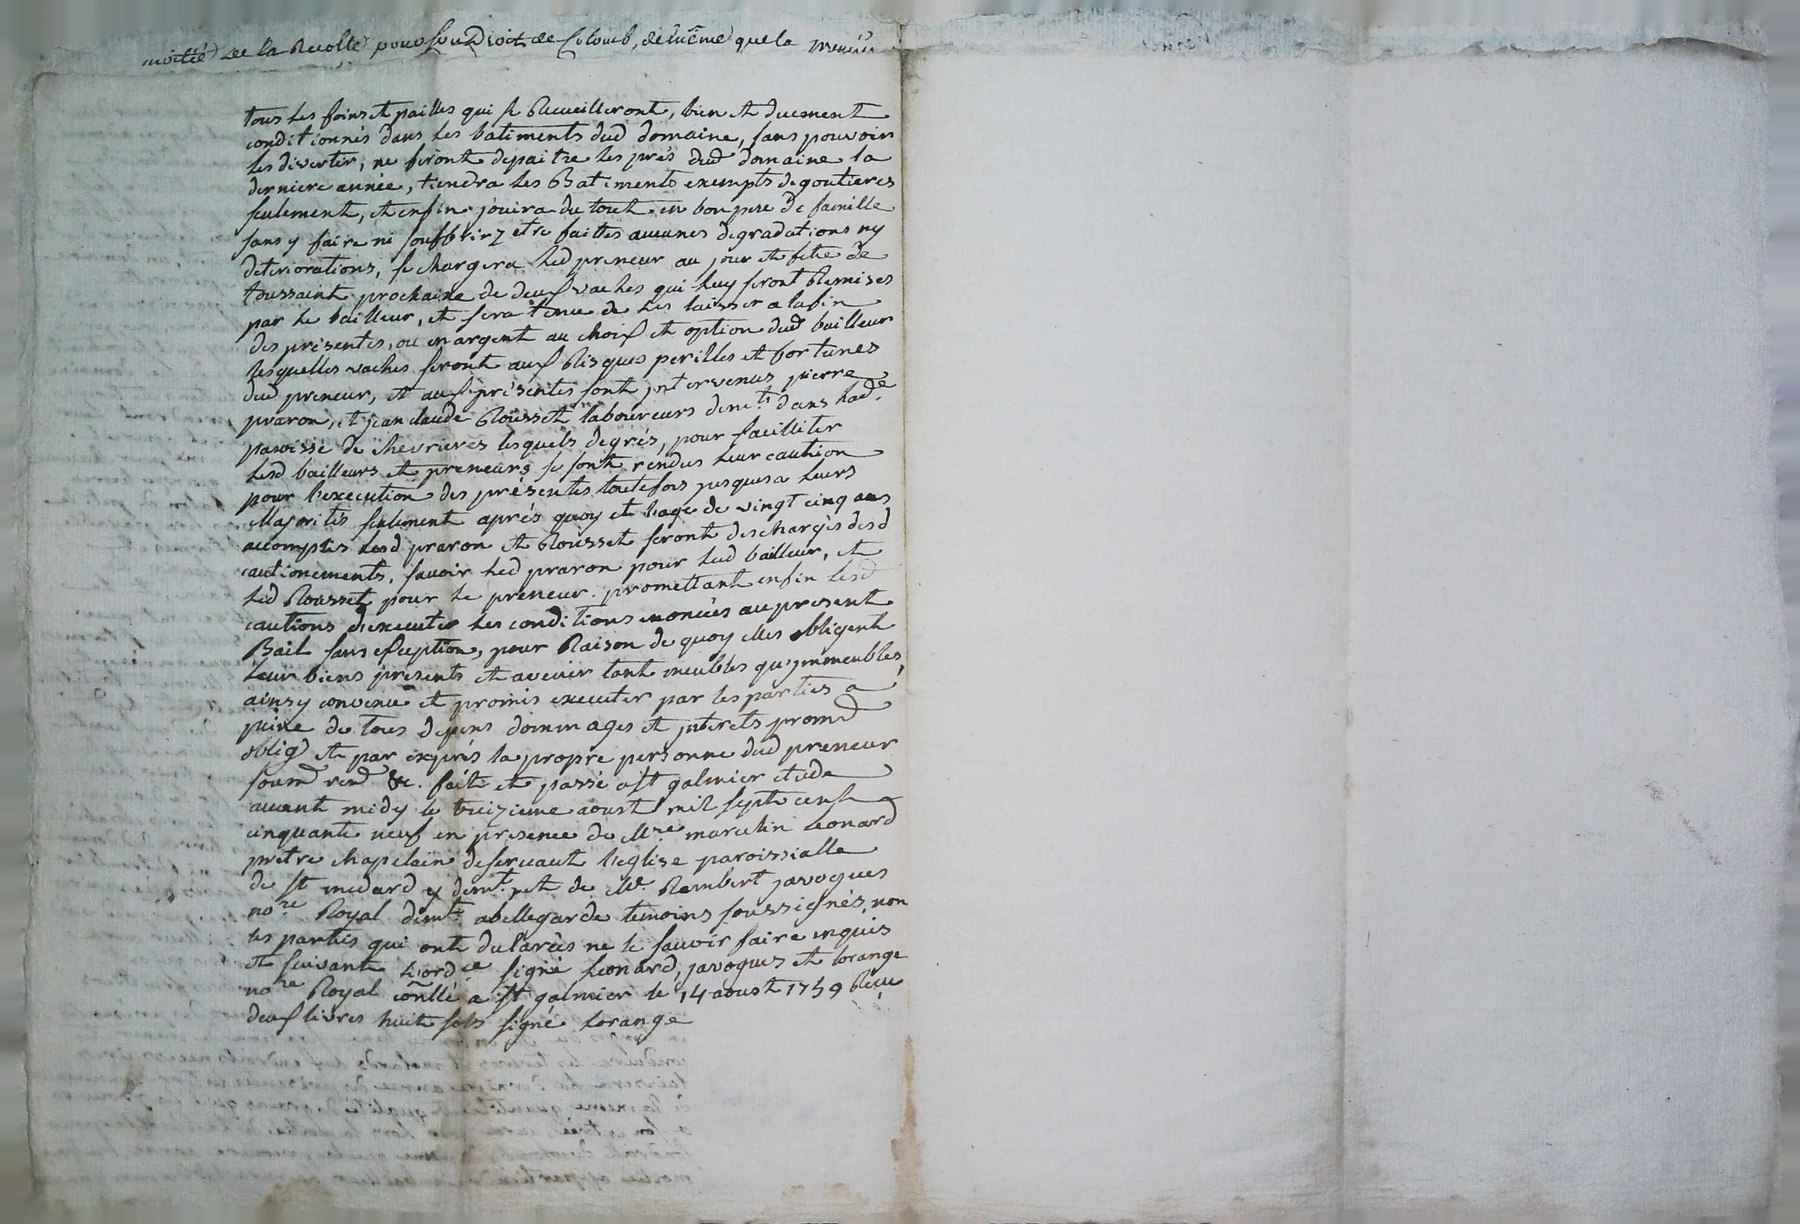 moitié de la Recolte pour son Droit de Colomb, de même que la premiere
tous les foins et pailles qui se Recueilleront, bien et duement
conditionnés dans les batiments dud domaine, sans pouvoir
les divertir, ne feront depaitre les prés dud domaine la
derniere année, tiendra les Batiments exempts de goutieres
seulement, et enfin jouira du tout en bon pere de famille
sans y faire ni souffrir etre faittes aucunes degradations ny
deteriorations, se chargera led preneur au jour et fete de
toussaint prochaine de deux vaches qui luy seront Remises
par le bailleur, et sera tenu de les laisser a la fin
des presentes, ou en argent au choix et option dud bailleur
lesquelles vaches seront aux Risques perilles et fortunes
dud preneur, et aux présentes sont intervenus pierre
praron, et jean claude Rousset laboureurs demt dans lade
paroisse de chevrieres lesquels degrés, pour facilliter
lesd bailleurs et preneurs se sont rendus leur caution
pour l'execution des présentes toutefois jusques a leurs
Majorités seulement aprés quoy et l'age de vingt cinq ans
accomplis lesd praron et Rousset seront deschargés desd
cautionements, savoir led praron pour led bailleur, et
led Rousset pour le preneur. promettant enfin lesd
cautions d'executer les conditions enoncées au present
Bail sans exception, pour Raison de quoy elles obligent
leur biens présents et avenir tant meubles qu'immeubles,
ainsy convenu et promis executer par les parties a
peine de tous depens dommages et interets promd
oblig et par exprés la propre personne dud preneur
soumd rend &c. fait et passé a st galmier etude
avant midy le treizieme aoust mil sept cent
cinquante neuf en presence de Mre marcelin Leonard
pretre chapelain deservant l'eglise paroissialle
de st medard y demt et de Me Rembert javogues
nore Royal demt abellegarde temoins soussignés, non
les parties qui ont declarées ne le savoir faire enquis
et suivant l'ordce signé Leonard, javogues et Lorange
nore Royal conllé a st galmier le 14 aoust 1759 Reçu
deux livres huit sols signé Lorange